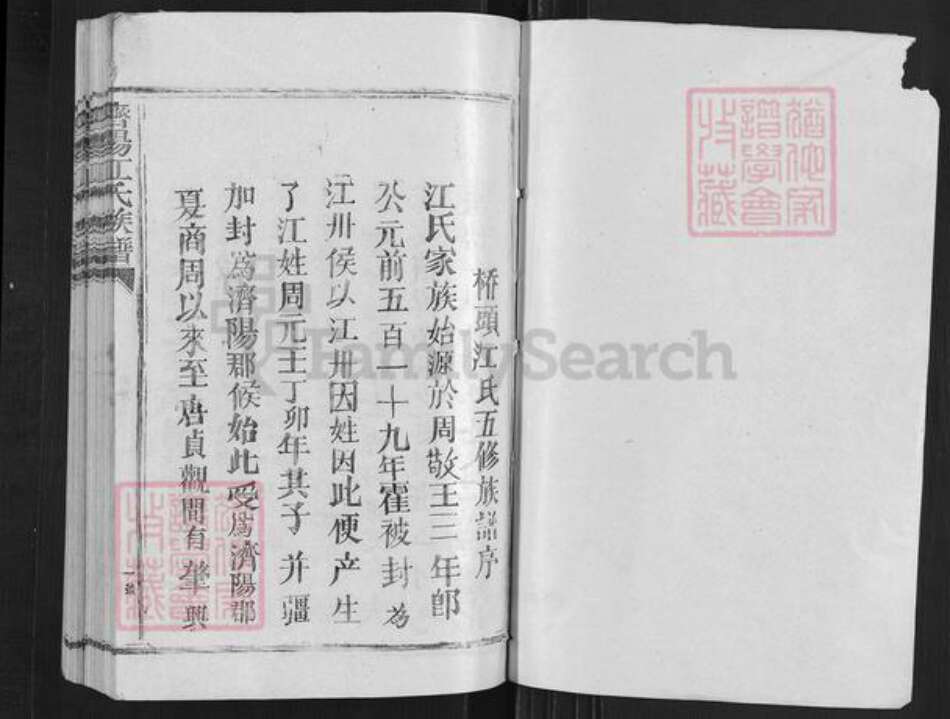 猶他家
譜學會
收藏
橋頭江氏五修族譜序
江氏家族始源於周敬王三年即
公元前五百一十九年霍被封為
江卅侯以江卅因姓因此便产生
了江姓周元王丁卯年其子并疆
加封為濟陽郡侯始此受為濟陽郡
夏商周以來至唐貞觀間有肇興
濟陽江氏族譜
猶他家
譜學會
收藏
FamilySearch